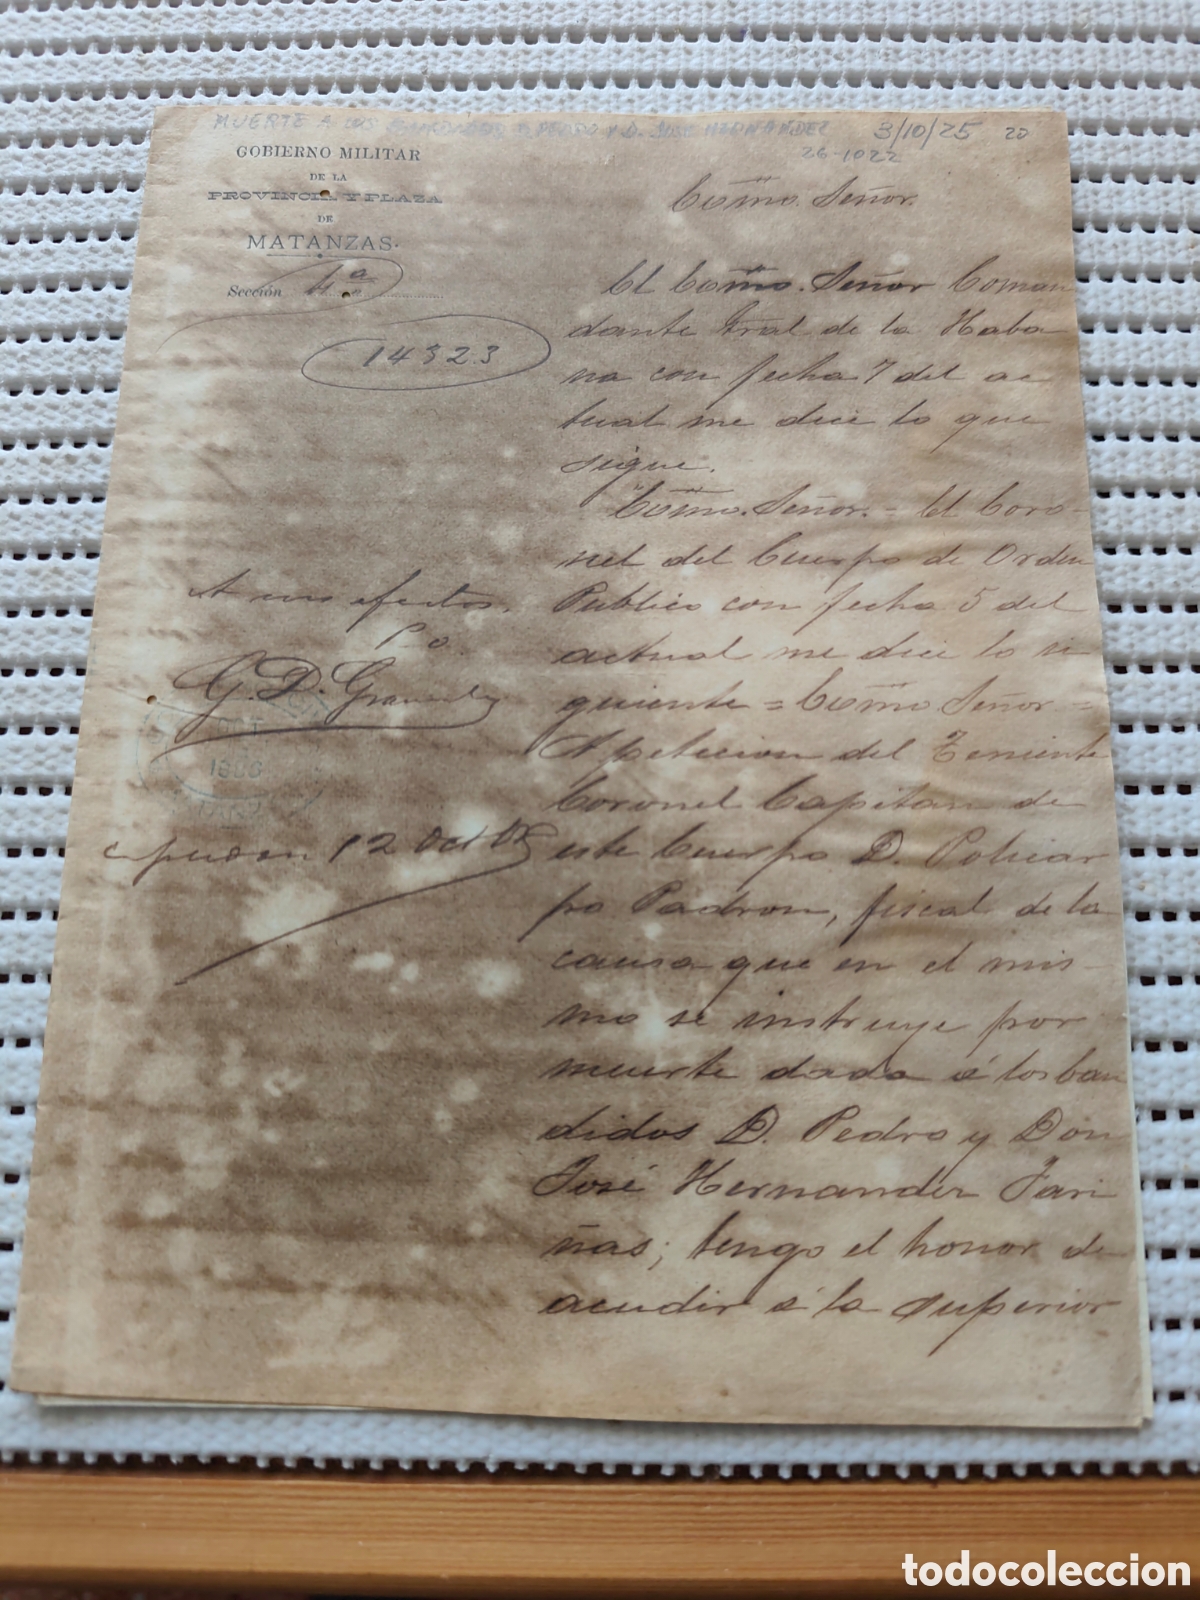 MUERTE A LOS BANDIDOS D. PEDRO Y D. JOSE HERNANDEZ 3/10/25 20
26-1022
GOBIERNO MILITAR
DE LA
PROVINCIA Y PLAZA
DE
MATANZAS.
Sección 4ª
14323
Ecmo. Señor.
El Ecmo. Señor Coman
dante Gral de la Haba
na con fecha 7 del ac
tual me dice lo que
sigue.
Ecmo. Señor. = El Coro-
nel del Cuerpo de Orden
Publico con fecha 5 del
actual me dice lo si
guiente = Ecmo Señor =
A peticion del Teniente
Coronel Capitan de
este Cuerpo D. Policar
po Padron, fiscal de la
causa que en el mis-
mo se instruye por
muerte dada á los ban
didos D. Pedro y Don
José Hernandez Fari
ñas; tengo el honor de
acudir á la superior
A sus efectos.
P. O.
G. D.
1886
12 Oct
todocoleccion